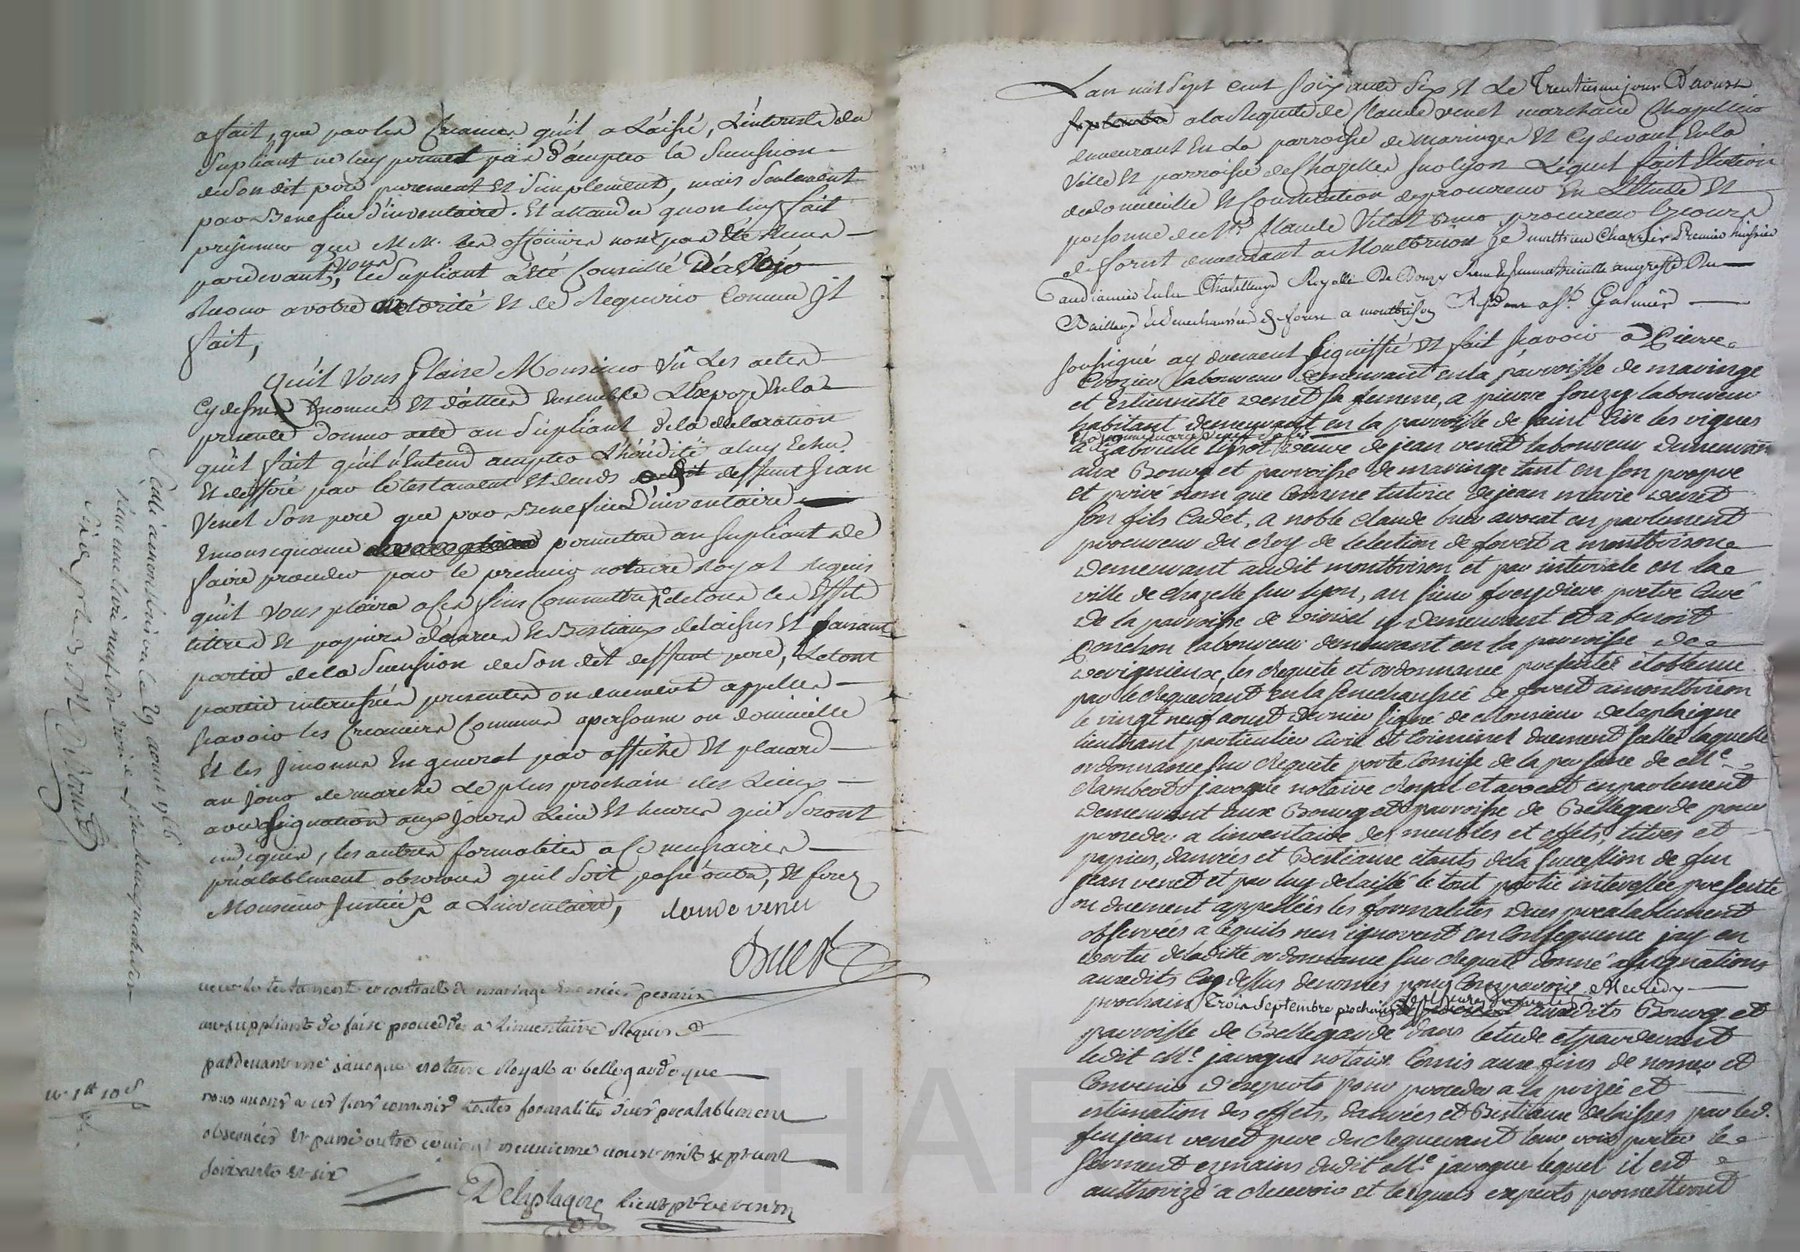 a fait, que par les Creanciers qu'il a Laissé, L'interests du
Supliant ne luy permet pas d'accepter la Sucession
de Son dit pere purement et Simplement, mais Seulement
par Benefice d'inventaire. Et attandu quon luy fait
que MM. les officiers nont pas
pardevant vous, le Supliant a été Conseillé d'avoir
Recour a votre autorité et de Requerir Comme Il
fait,
Qu'il Vous Plaise Monsieur Vû Les actes
Cy dessus Enoncés et dattés Ensemble L'Exposé En la
presente donner acte au Supliant de la declaration
qu'il fait qu'il n'Entend accepter L'hérédité a luy Echue
Et defferé par le testament et deceds deffunt Jean
Venet Son pere que par Benefice d'inventaire
En consequance permettre au Supliant de
faire proceder par le premier notaire Royal Requis
qu'il Vous plaira a Ces fins Commettre de tous les Effets
titres et papiers danrées et Bestiaux delaissés et faisant
partie de la Sucession de Son dit deffunt pere, Le tout
partie interessées presentes ou duement appellées
Scavoir les Creanciers Connus a personne ou domicille
Et les Inconnus En general par affiche et placard
au Jour de marché Le plus prochain des Lieux
avec assignation aux Jours Lieu et heures qui Seront
indiqués, les autres formalités a Ce necessaires
préalablement observées qu'il Soit passé outre, et ferez
Monsieur Justice a L'inventaire, claude venet
Buer
veu le testament et contract de mariage Enoncés permis
au suppliant de faire proceder a L'inventaire Requis
pardevant me Javogue notaire Royal a bellegarde que
nous avons a ces fins commis toutes formalités dues prealablement
observées Et passé outre ce vingt neuvieme aoust mil sept cent
soixante et six
Delaplagne lieut part
Scellé a montbrison le 29 aoust 1766
L'an mil Sept Cent Soixante Six Et Le Trentieme jour D'aoust
a la Requete de Claude Venet marchand Chapellier
demeurant En La parroisse de maringes Et Cy devant En la
Ville Et parroisse de Chazelles Sur Lyon Lequel fait Election
de domicille Et Constitution de procureur En L'Etude Et
personne de Me Claude Vital Buer procureur Es Cours
de forest demeurant a Montbrison Je mathieu Charrier Premier huissier
audiancier En La Chatellenie Royalle De Donzy
Bailliage et Senechaussée de forest a montbrison Residant a St. Galmier
Soussigné ay duement Signiffié Et fait Scavoir a Pierre
Crozier laboureur demeurant en la parroisse de maringe
et Estiennette venet sa femme, a pierre laboureur
habitant demeurant en la parroisse de saint Cir les vignes
veuve de jean venet laboureur demeurant
aux Bourg et parroisse de maringe tant en son propre
et privé nom que Comme tutrice de jean marie venet
son fils Cadet, a noble claude buer avocat en parlement
procureur du Roy de l'election de forest a montbrison
demeurant audit montbrison et par intervale en la
ville de chazelle sur lyon, au sieur pretre Curé
de la parroisse de y demeurant et a benoit
Ponchon laboureur demeurant en la parroisse de
les Requete et ordonnance presentée et obtenue
par le Requerant en la senechaussée de forest a montbrison
le vingt neuf aoust dernier signé de Monsieur delaplaigne
lieutenant particulier Civil et Criminel duement scellée laquelle
ordonnance sur Requete porte Comise de la personne de Me
lambert javogue notaire Royal et avocat en parlement
demeurant aux Bourg et parroisse de Bellegarde pour
proceder a l'inventaire des meubles et effets, titres et
papiers, danrées et Bestiaux etants de la sucession de feu
jean venet et par luy delaissé le tout partie interessée presente
ou duement appellées les formalités dues prealablement
observées a ce qu'ils n'en ignorent en Consequence jay en
vertu de ladite ordonnance sur Requete donné assignations
auxdits Cy dessus denomés pour Comparoir Mecredy
prochain Trois Septembre prochain auxdits Bourg et
parroisse de Bellegarde dans l'etude et pardevant
ledit Me javogue notaire Comis aux fins de nomer et
Convenir d'experts pour proceder a la prizée et
estimation des effets, danrées et Bestiaux delaissés par led.
feu jean venet pere du Requerant leur voir preter le
serment es mains dudit Me javogue lequel il est
authorizé a Recevoir et lesquels experts promettront